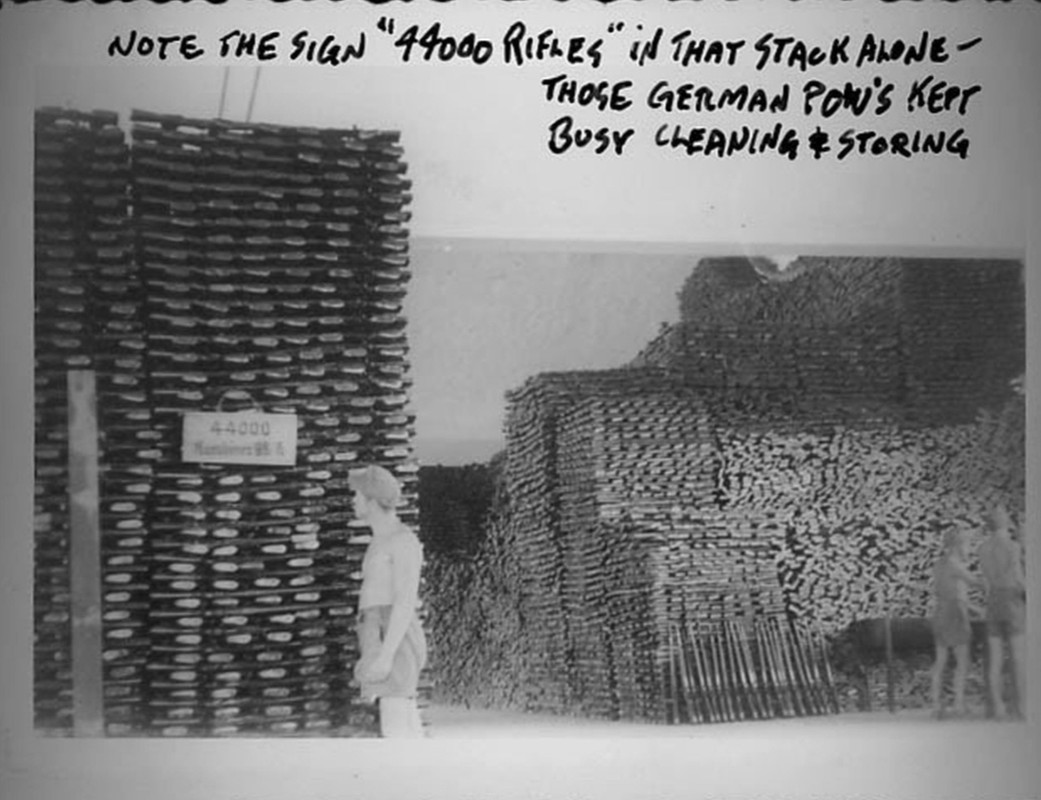 NOTE THE SIGN "44000 RIFLES" IN THAT STACK ALONE —
THOSE GERMAN POW'S KEPT
BUSY CLEANING & STORING
44000